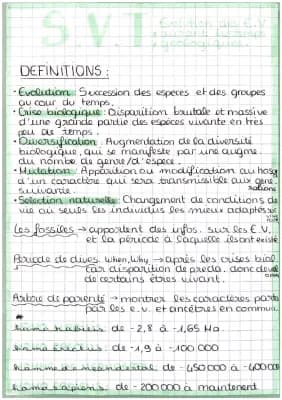 S.V.T
Evolution des E.V
DEFINITIONS :
• Evolution : Succession des espèces et des groupes
au cour du temps.
• Crise biologique : Disparition brutale et massive
d'une grande partie des espèces vivante en très
peu de temps.
• Diversification : Augmentation de la diversité
biologique, qui se manifeste par une augme.
du nombe de genre/d'espèce.
• Mutation : Apparition ou modification au hasard
d'un caractère qui sera transmissible aux géné-
suivante. rations
• Selection naturelle : Changement de conditions de
vie où seuls les individus les mieux adaptés
Les fossiles → apportent des infos. sur les E.V.
et la période à laquelle ils ont existé
Periode de dives. When, Why → après les crises biol.
car disparition de préda. donc devel
de certains êtres vivant.
Arbre de parenté → montrer les caractères parta
par les e.v. et ancêtres en commun.
homo habilis de -2,8 à -1,65 Ma.
homo erectus de -1,9 à -100 000
homme de néandertal de -450 000 à -400 00
homo sapiens de -200 000 à maintenent